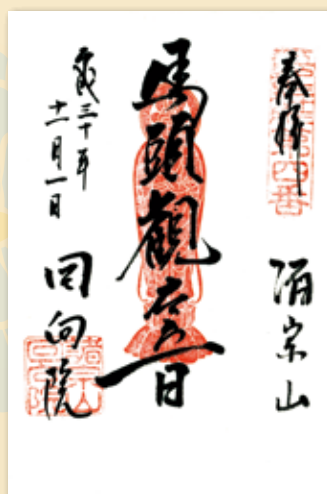 奉拝
諸宗山
馬頭觀世音
平成三十年
十一月一日
回向院